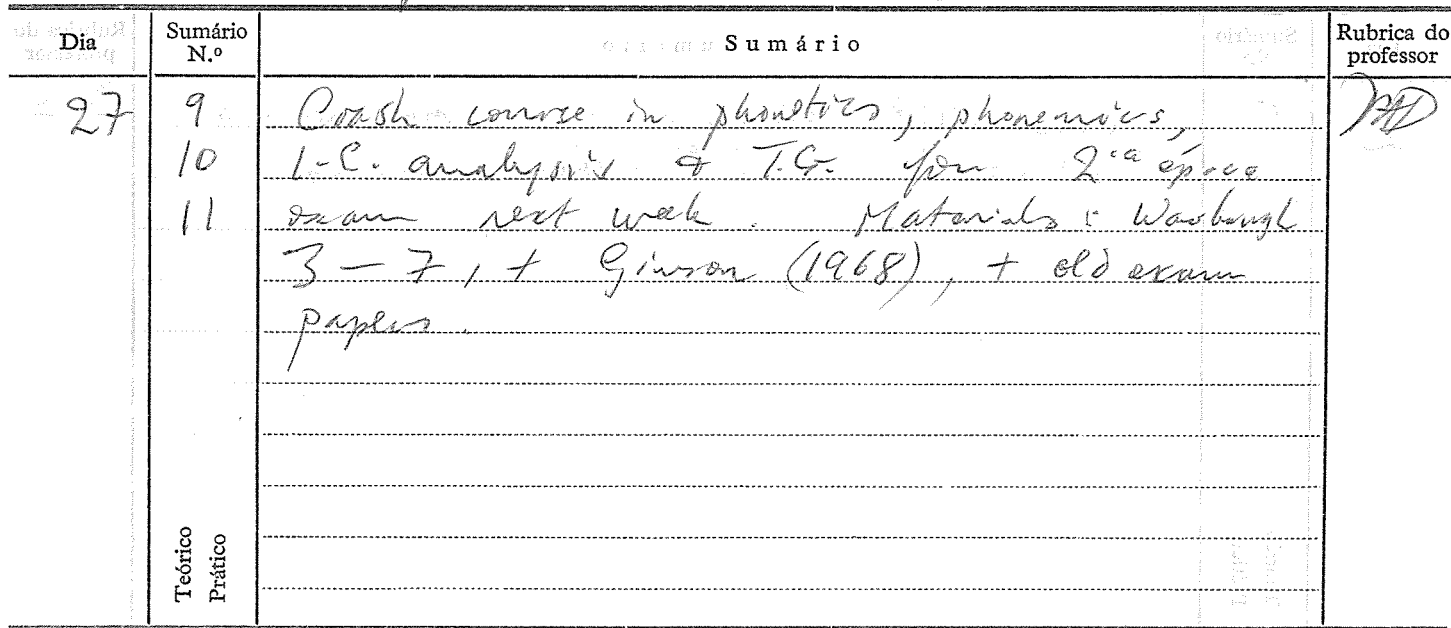 Dia
Sumário N.º
Sumário
Rubrica do professor
27
9 Crash course in phonetics, phonemics,
10 I-C. analysis & T.G. for 2.ª época
11 exam next week. Materials: Wardhaugh
3 - 7, + Gimson (1968), + old exam
papers.
Teórico
Prático